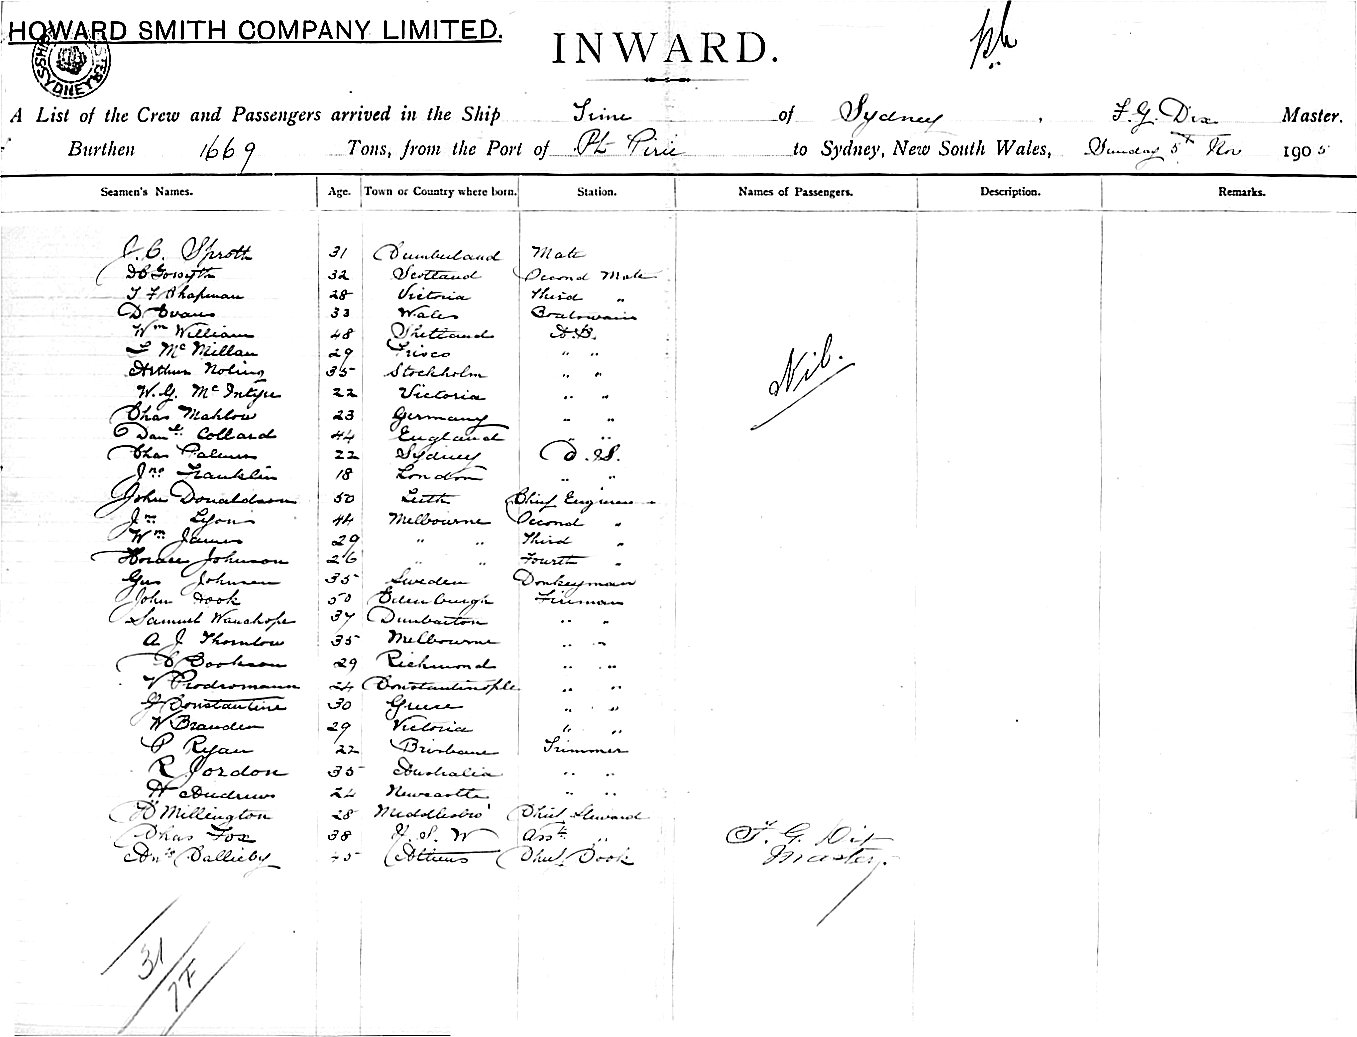 HOWARD SMITH COMPANY LIMITED.
SYDNEY
INWARD.
A List of the Crew and Passengers arrived in the Ship Time of Sydney, F. G. Dix Master.
Burthen 1669 Tons, from the Port of Pt Pirie to Sydney, New South Wales, Sunday 5th Nov 1905
Seamen's Names. Age. Town or Country where born. Station. Names of Passengers. Description. Remarks.
J. C. Sprott 31 Cumberland Mate
D C Forsyth 32 Scotland Second Mate
T F Chapman 28 Victoria Third "
D Evans 33 Wales Boatswain
Wm William 48 Shetland A.B.
L Mc Millan 29 Frisco " "
Nil.
Arthur Noling 35 Stockholm " "
W. G. Mc Intyre 22 Victoria " "
Chas Mahlow 23 Germany " "
Danl Collard 44 England " "
Chas Palmer 22 Sydney O.S.
Jno Franklin 18 London " "
John Donaldson 50 Leith Chief Engineer
Jno Lyons 44 Melbourne Second "
Wm James 29 " " Third "
Horace Johnson 26 " " Fourth "
Gus Johnsen 35 Sweden Donkeyman
John Cook 50 Edenburgh Fireman
Samuel Wauchope 37 Dunbarton " "
A J Thornlow 35 Melbourne " "
Cookson 29 Richmond " "
V Prodromann 24 Constantinople " "
G Constantine 30 Greece " "
W Branden 29 Victoria " "
P Ryan 22 Brisbane Trimmer
R Jordon 35 Australia " "
H Andrews 24 Newcastle " "
D Millington 28 Middlesbro' Chief Steward
Chas Fox 38 N. S. W Asst "
F. G. Dix
Anto 45 Athens Chief Cook
Master.
31